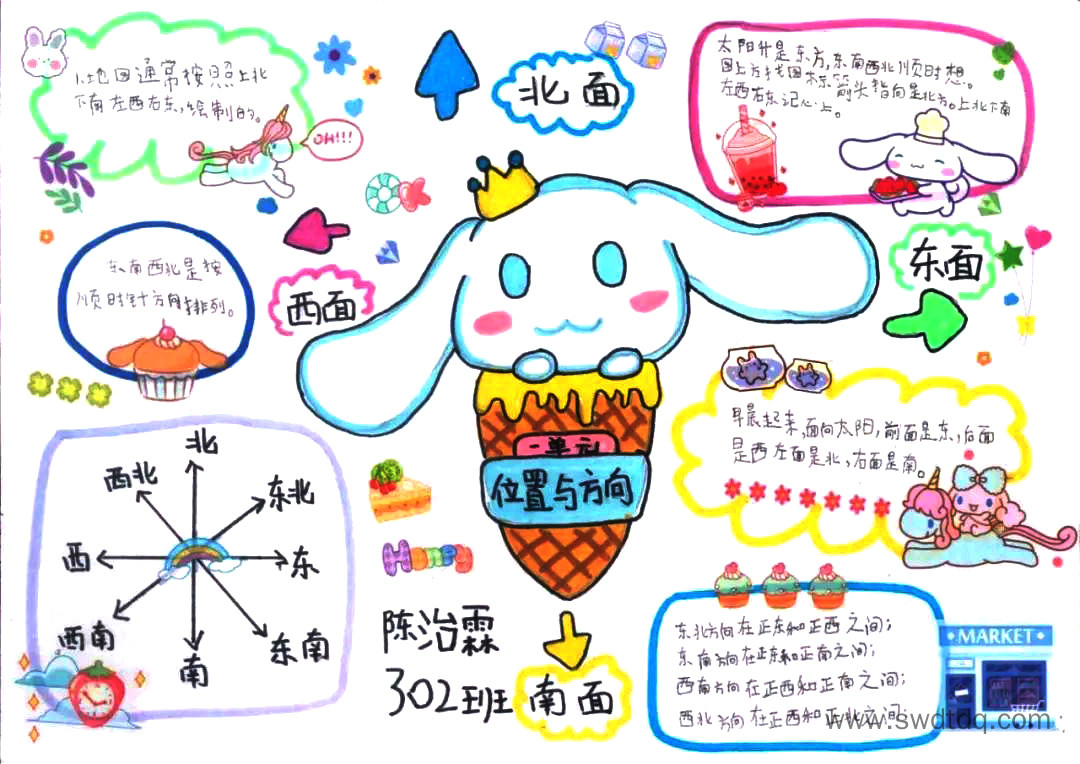 1.地图通常按照上北
下南左西右东,绘制的。
OH!!!
北面
太阳升是东方,东南西北顺时想。
图上方找图标,箭头指向是北方。上北下南
左西右东记心上。
东南西北是按
顺时针方向排列。
西面
东面
一单元
位置与方向
早晨起来,面向太阳,前面是东,后面
是西左面是北、右面是南。
北
西北
东北
西
东
西南
东南
南
陈治霖
302班
南面
东北方向在正东和正西之间;
东南方向在正东和正南之间;
西南方向在正西和正南之间;
西北方向在正西和正北之间;
MARKET
www.swdtdq.com